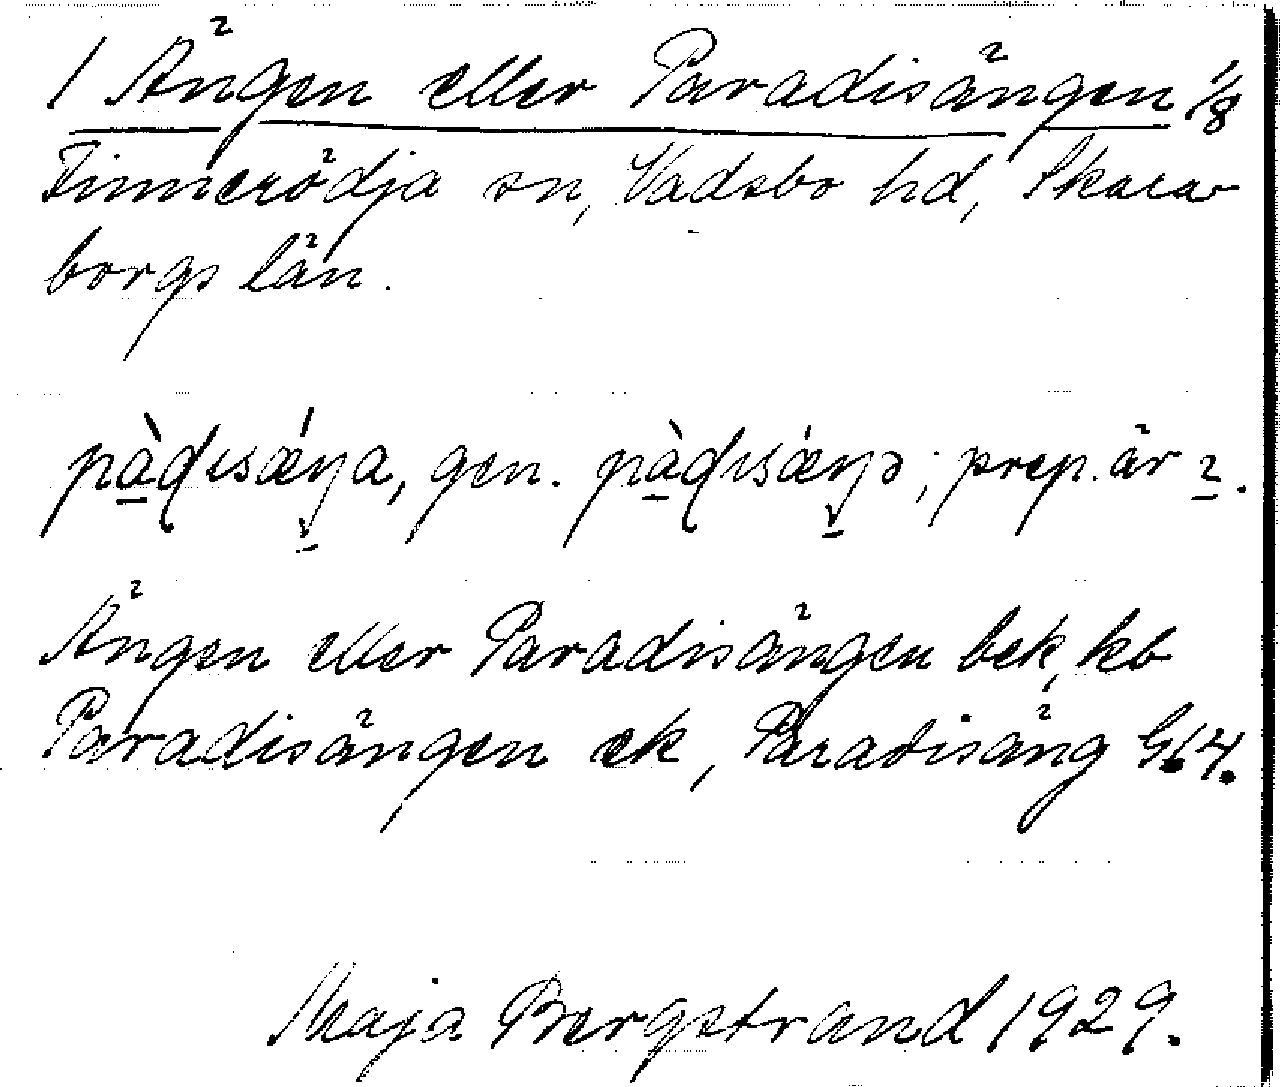 1 Ängen eller Paradisängen 1/8
Finnerödja sn, Vadsbo hd, Skara-
borgs län.
gen. ; prep. är
Ängen eller Paradisängen bek, kb
Paradisängen ek, Paradisäng G.64.
Maja Bergstrand 1929.